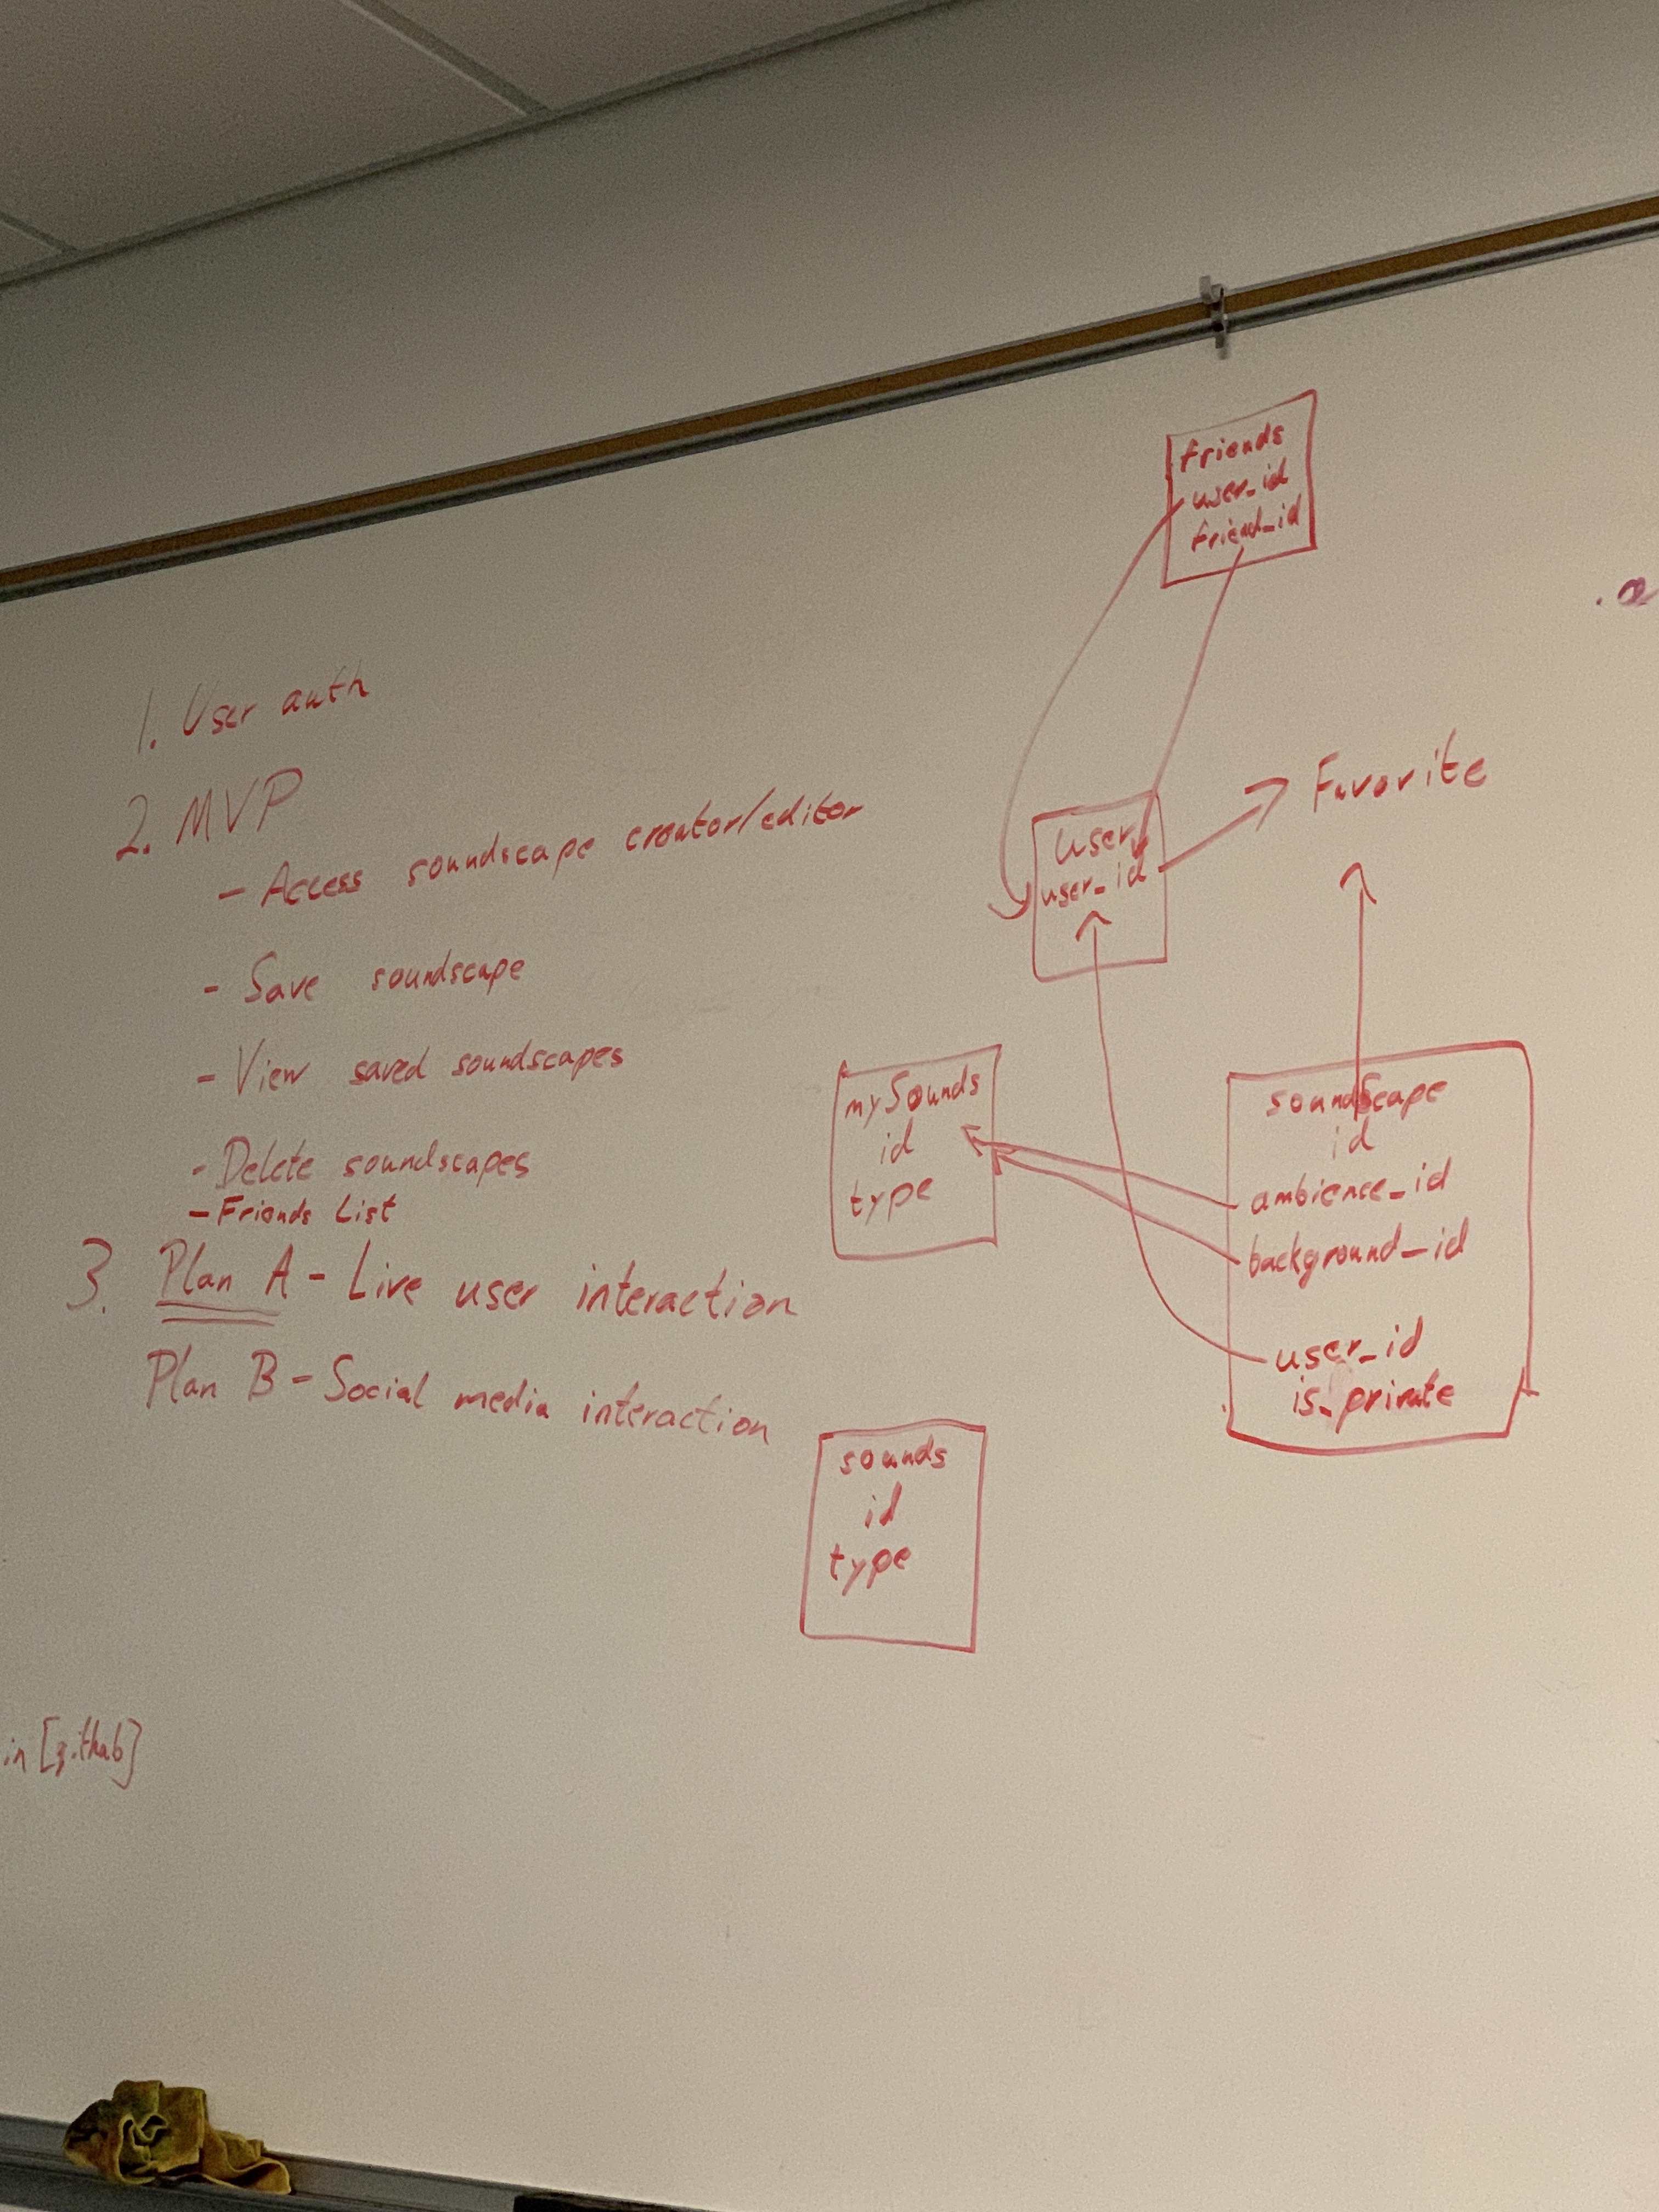 friends
user_id
friend_id
1. User auth
2. MVP
- Access soundscape creator/editor
- Save soundscape
- View saved soundscapes
- Delete soundscapes
- Friends List
3. Plan A - Live user interaction
Plan B - Social media interaction
User
user_id
Favorite
mySounds
id
type
soundscape
id
ambience_id
background_id
user_id
is_private
sounds
id
type
in [github]